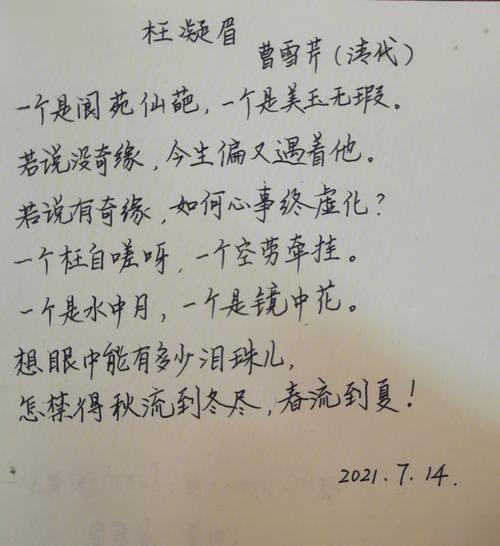 枉凝眉
曹雪芹(清代)
一个是阆苑仙葩,一个是美玉无瑕。
若说没奇缘,今生偏又遇着他。
若说有奇缘,如何心事终虚化?
一个枉自嗟呀,一个空劳牵挂。
一个是水中月,一个是镜中花。
想眼中能有多少泪珠儿,
怎禁得秋流到冬尽,春流到夏!
2021.7.14.